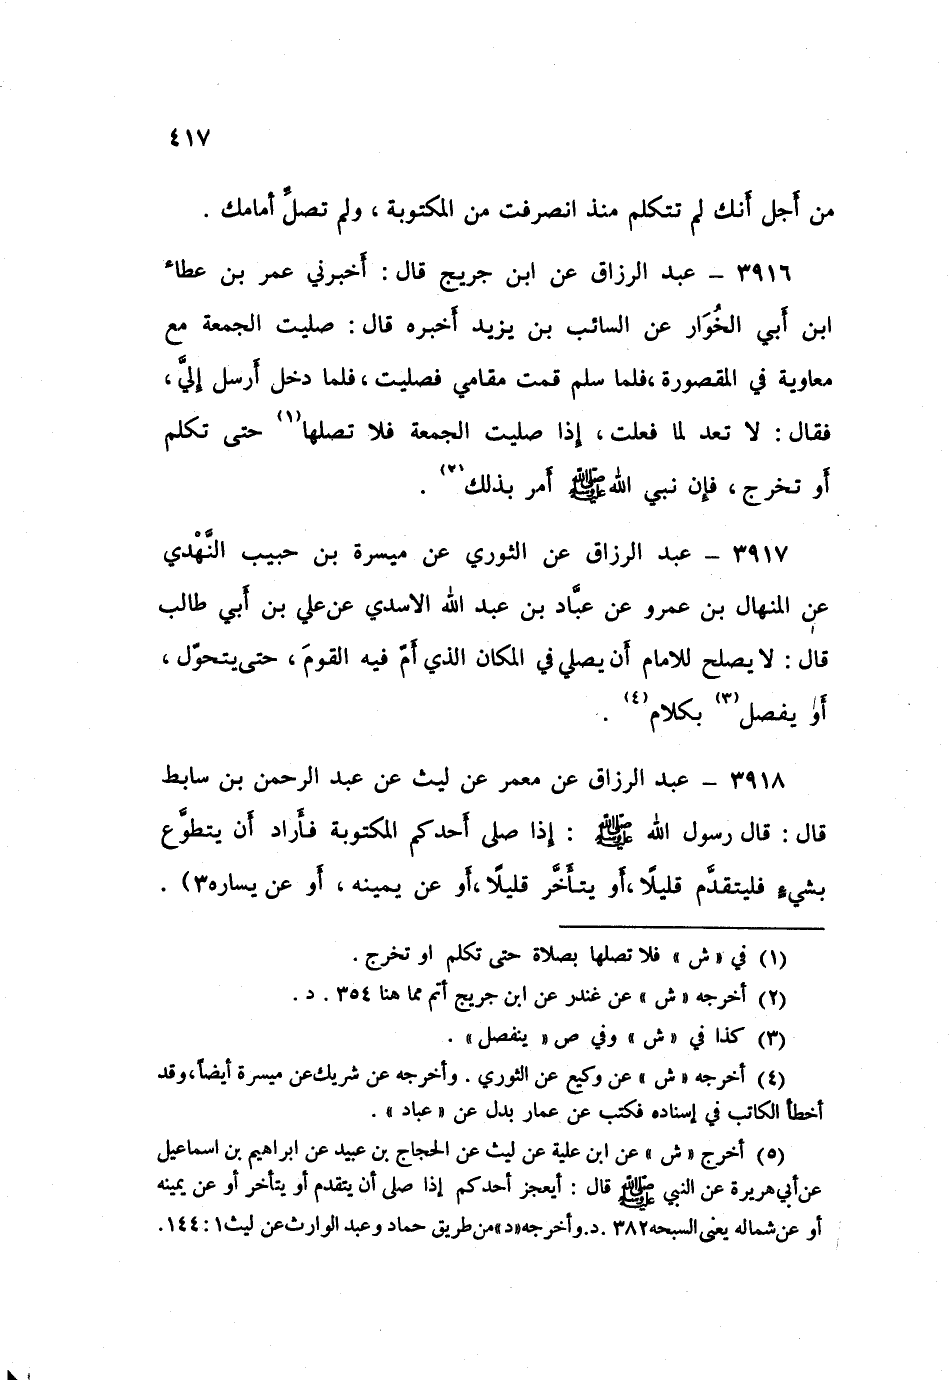 ٤١٧
من أَجل أَنك لم تتكلم منذ انصرفت من المكتوبة ، ولم تصلِّ أَمامك .
٣٩١٦ – عبد الرزاق عن ابن جريج قال : أَخبرني عمر بن عطاء
ابن أَبي الخُوَار عن السائب بن يزيد أَخبره قال : صليت الجمعة مع
معاوية في المقصورة ،فلما سلم قمت مقامي فصليت ، فلما دخل أَرسل إليَّ ،
فقال : لا تعد لما فعلت ، إذا صليت الجمعة فلا تصلها(١) حتى تكلم
أَو تخرج ، فإن نبي الله ﷺ أَمر بذلك(٢) .
٣٩١٧ – عبد الرزاق عن الثوري عن ميسرة بن حبيب النَّهْدي
عن المنهال بن عمرو عن عبَّاد بن عبد الله الاسدي عن علي بن أَبي طالب
قال : لا يصلح للامام أَن يصلي في المكان الذي أَمّ فيه القومَ ، حتى يتحوّل ،
أَو يفصل(٣) بكلام(٤) .
٣٩١٨ – عبد الرزاق عن معمر عن ليث عن عبد الرحمن بن سابط
قال : قال رسول الله ﷺ : إذا صلى أَحدكم المكتوبة فأَراد أَن يتطوَّع
بشيءٍ فليتقدَّم قليلًا ،أَو يتأَخَّر قليلًا ،أَو عن يمينه ، أَو عن يساره٣) .
(١) في « ش » فلا تصلها بصلاة حتى تكلم او تخرج .
(٢) أخرجه « ش » عن غندر عن ابن جريج أتم مما هنا ٣٥٤ . د .
(٣) كذا في « ش » وفي ص « ينفصل » .
(٤) أخرجه « ش » عن وكيع عن الثوري . وأخرجه عن شريك عن ميسرة أيضاً، وقد
أخطأ الكاتب في إسناده فكتب عن عمار بدل عن « عباد » .
(٥) أخرج « ش » عن ابن علية عن ليث عن الحجاج بن عبيد عن ابراهيم بن اسماعيل
عن أبي هريرة عن النبي ﷺ قال : أيعجز أحدكم إذا صلى أن يتقدم أو يتأخر أو عن يمينه
أو عن شماله يعنى السبحه ٣٨٢ .د. وأخرجه «د» من طريق حماد وعبد الوارث عن ليث ١ : ١٤٤ .